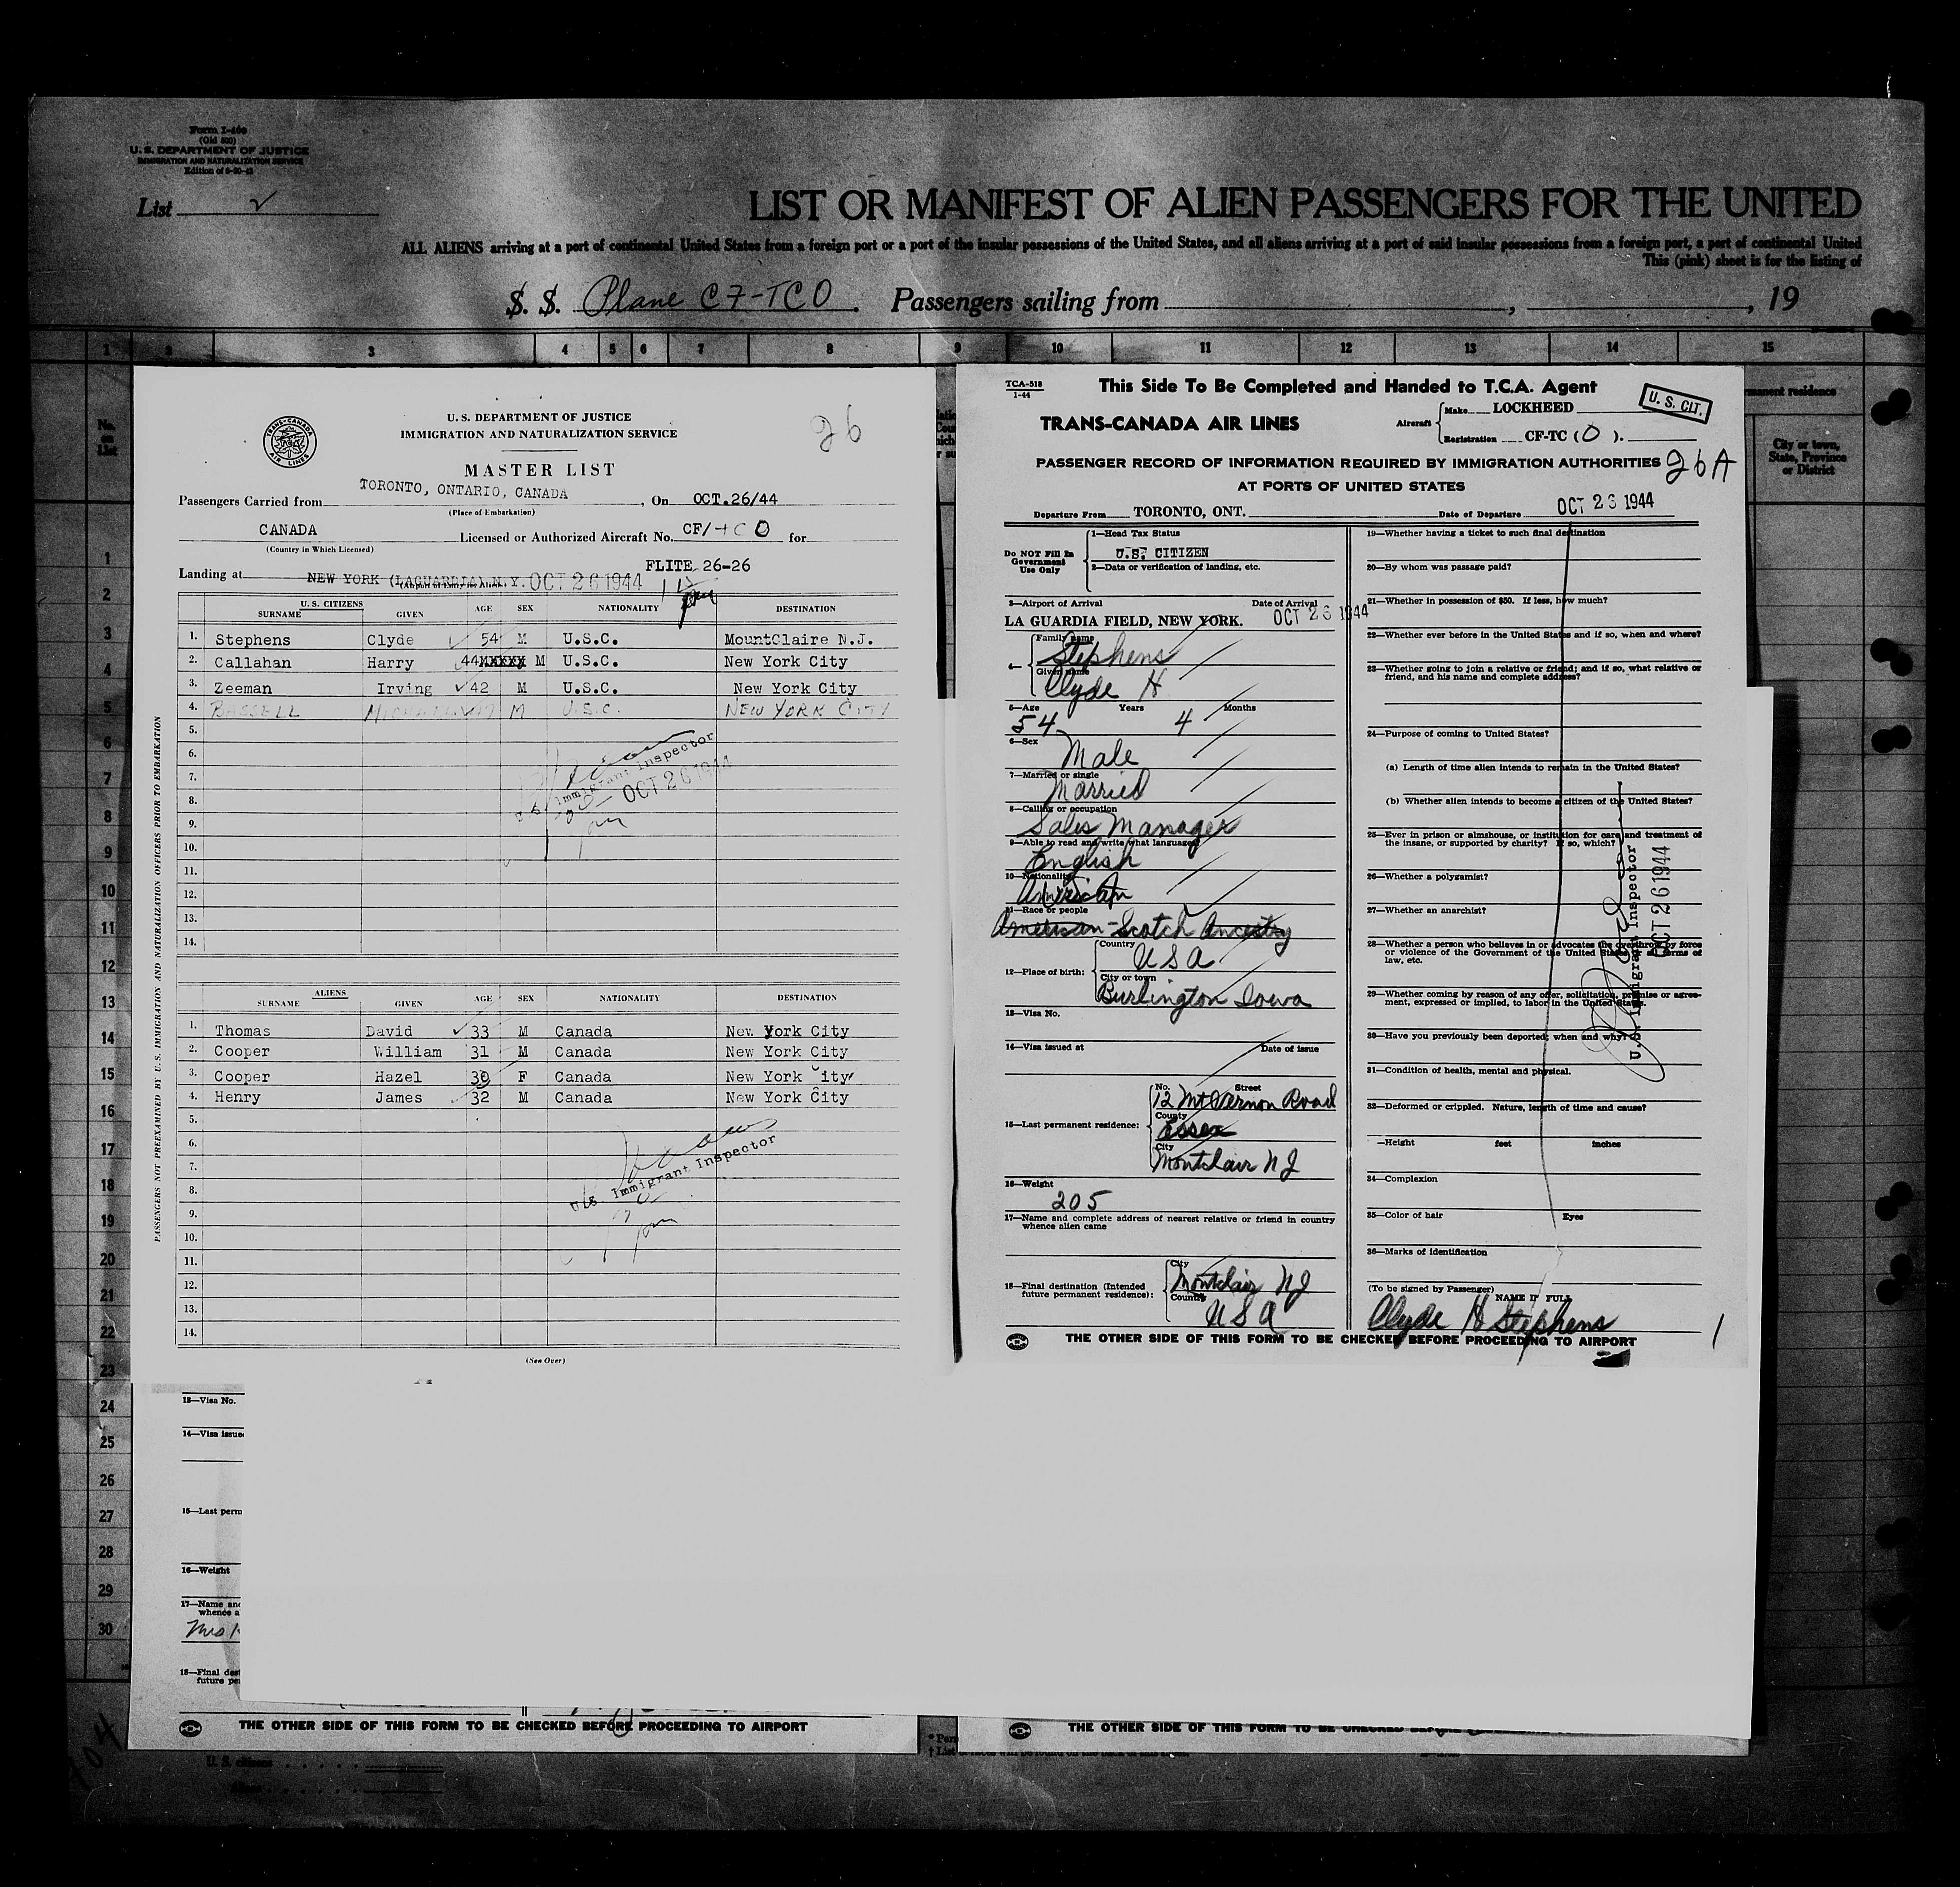 Form I-466
(Old 500)
U. S. DEPARTMENT OF JUSTICE
IMMIGRATION AND NATURALIZATION SERVICE
List
LIST OR MANIFEST OF ALIEN PASSENGERS FOR THE UNITED
ALL ALIENS arriving at a port of continental United States from a foreign port or a port of the insular possessions of the United States, and all aliens arriving at a port of said insular possessions from a foreign port, a port of continental United
This (pink) sheet is for the listing of
S. S. Plane CF-TCO. Passengers sailing from , , 19
1 2 3 4 5 6 7 8 9 10 11 12 13 14 15
No. on List
manent residence
City or town, State, Province or District
1
2
3
4
5
6
7
8
9
10
11
12
13
14
15
16
17
18
19
20
21
22
23
24
25
26
27
28
29
30
TRANS-CANADA AIR LINES
U. S. DEPARTMENT OF JUSTICE
IMMIGRATION AND NATURALIZATION SERVICE
26
MASTER LIST
Passengers Carried from TORONTO, ONTARIO, CANADA, On OCT.26/44
(Place of Embarkation)
CANADA Licensed or Authorized Aircraft No. CF/TCO for
(Country in Which Licensed)
FLITE 26-26
Landing at NEW YORK (LAGUARDIA) N.Y. OCT 26 1944
U. S. CITIZENS
SURNAME GIVEN AGE SEX NATIONALITY DESTINATION
1. Stephens Clyde 54 M U.S.C. MountClaire N.J.
2. Callahan Harry 44XXXXX M U.S.C. New York City
3. Zeeman Irving 42 M U.S.C. New York City
4. BASSELL M U.S.C. NEW YORK CITY
5.
6.
7.
8.
9.
10.
11.
12.
13.
14.
U.S. Immigrant Inspector
OCT 26 1944
pm
ALIENS
SURNAME GIVEN AGE SEX NATIONALITY DESTINATION
1. Thomas David 33 M Canada New York City
2. Cooper William 31 M Canada New York City
3. Cooper Hazel 30 F Canada New York City
4. Henry James 32 M Canada New York City
5.
6.
7.
8.
9.
10.
11.
12.
13.
14.
U.S. Immigrant Inspector
pm
(See Over)
PASSENGERS NOT PREEXAMINED BY U.S. IMMIGRATION AND NATURALIZATION OFFICERS PRIOR TO EMBARKATION
TCA-518
1-44
This Side To Be Completed and Handed to T.C.A. Agent
U. S. CIT.
TRANS-CANADA AIR LINES
Aircraft Make LOCKHEED
Registration CF-TC (O).
PASSENGER RECORD OF INFORMATION REQUIRED BY IMMIGRATION AUTHORITIES 26A
AT PORTS OF UNITED STATES
Departure From TORONTO, ONT. Date of Departure OCT 26 1944
Do NOT Fill In
Government
Use Only
1—Head Tax Status
U.S. CITIZEN
2—Date or verification of landing, etc.
3—Airport of Arrival Date of Arrival
LA GUARDIA FIELD, NEW YORK. OCT 26 1944
4—
Family name
Stephens
Given name
Clyde H
5—Age Years Months
54 4
6—Sex
Male
7—Married or single
Married
8—Calling or occupation
Sales Manager
9—Able to read and write what language?
English
10—Nationality
American
11—Race or people
American-Scotch Ancestry
12—Place of birth:
Country
USA
City or town
Burlington Iowa
13—Visa No.
14—Visa issued at Date of issue
15—Last permanent residence:
No. Street
12 Mt Vernon Road
County
Essex
City
Montclair NJ
16—Weight
205
17—Name and complete address of nearest relative or friend in country
whence alien came
18—Final destination (Intended
future permanent residence):
City
Montclair NJ
Country
USA
19—Whether having a ticket to such final destination
20—By whom was passage paid?
21—Whether in possession of $50. If less, how much?
22—Whether ever before in the United States and if so, when and where?
23—Whether going to join a relative or friend; and if so, what relative or
friend, and his name and complete address?
24—Purpose of coming to United States?
(a) Length of time alien intends to remain in the United States?
(b) Whether alien intends to become a citizen of the United States?
25—Ever in prison or almshouse, or institution for care and treatment of
the insane, or supported by charity? If so, which?
26—Whether a polygamist?
27—Whether an anarchist?
28—Whether a person who believes in or advocates the overthrow by force
or violence of the Government of the United States or all forms of
law, etc.
29—Whether coming by reason of any offer, solicitation, promise or agree-
ment, expressed or implied, to labor in the United States.
30—Have you previously been deported; when and why?
31—Condition of health, mental and physical.
32—Deformed or crippled. Nature, length of time and cause?
—Height feet inches
34—Complexion
35—Color of hair Eyes
36—Marks of identification
(To be signed by Passenger) NAME IN FULL
Clyde H Stephens
U.S. Immigrant Inspector
OCT 26 1944
THE OTHER SIDE OF THIS FORM TO BE CHECKED BEFORE PROCEEDING TO AIRPORT
1
13—Visa No.
14—Visa issued
15—Last perm
16—Weight
17—Name and
whence a
Mrs
18—Final dest
future pe
THE OTHER SIDE OF THIS FORM TO BE CHECKED BEFORE PROCEEDING TO AIRPORT
THE OTHER SIDE OF THIS FORM TO BE CHECKED
U. S. citizens
Aliens